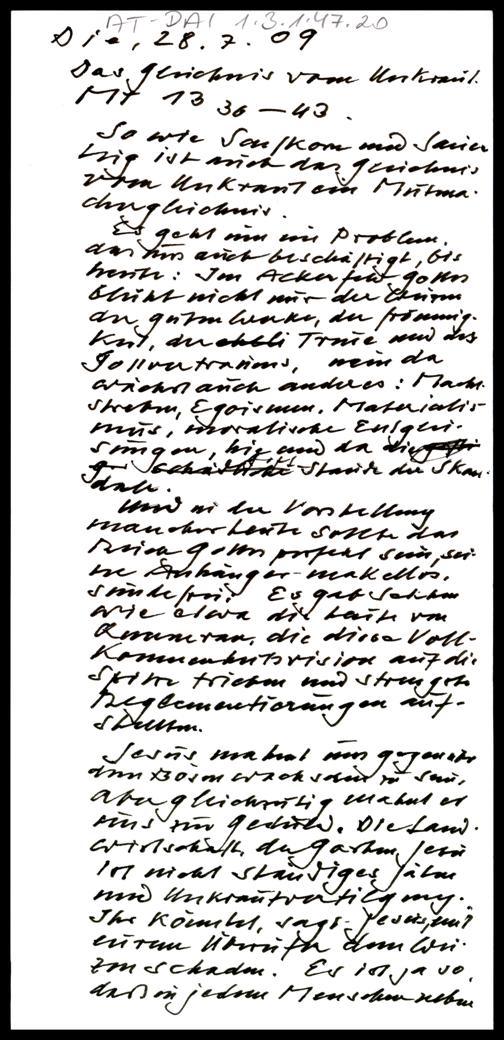 AT-DAI 1.3.1.47.20
Die, 28.7.09
Das Gleichnis vom Unkraut.
Mt 13 36-43.
So wie Senfkorn und Sauer-
teig ist auch das Gleichnis
vom Unkraut ein Mutma-
chergleichnis.
Es geht um ein Problem,
das uns auch beschäftigt, bis
heute: Im Ackerfeld Gottes
blüht nicht nur der Weizen
der guten Werke, der Frömmig-
keit, der Treue und des
Gottvertrauens, nein da
wächst auch anderes: Macht-
streben, Egoismen, Materialis-
mus, moralische Entglei-
sungen, hie und da die
Staude der Skan-
dale.
Und in der Vorstellung
mancher Leute sollte das
Reich Gottes perfekt sein, sei-
ne Anhänger makellos,
sündefrei. Es gab Sekten
wie etwa die Leute von
Qumran, die diese Voll-
kommenheitsvision auf die
Spitze trieben und strengste
Reglementierungen auf-
stellten.
Jesus mahnt uns gegenüber
dem Bösen wachsam zu sein,
aber gleichzeitig mahnt er
uns zur Geduld. Die Land-
wirtschaft, der Garten Jesu
ist nicht ständiges Jäten
und Unkrautvertilgung.
Ihr könntet, sagt Jesus, mit
eurem Übereifer dem Wei-
zen schaden. Es ist ja so,
daß in jedem Menschen neben